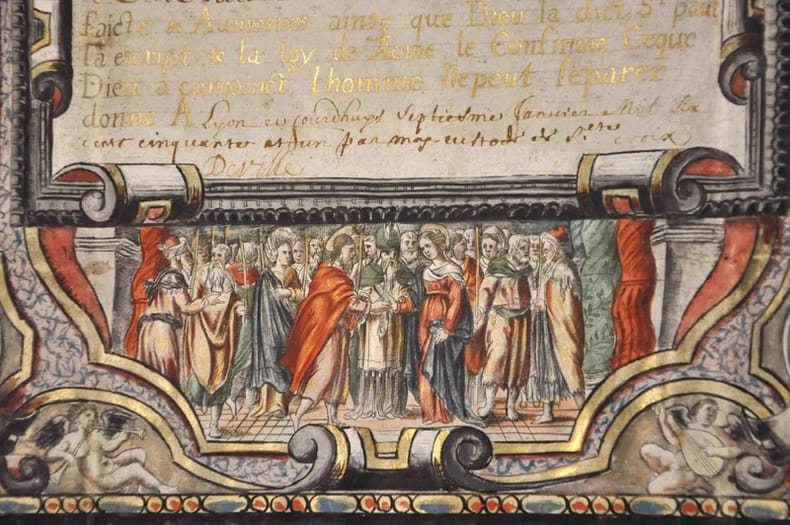 faicte & Aumosnes ainsy que Dieu la dict, St. paul
la escript & la loy de Rome le Confirme Ceque
Dieu a conioinct, Lhomme Nepeut separer
donne A Lyon ce jourdhuys septiesme Janvier Mil Six
cents cinquante et un par moy custode de Ste croix
Deville